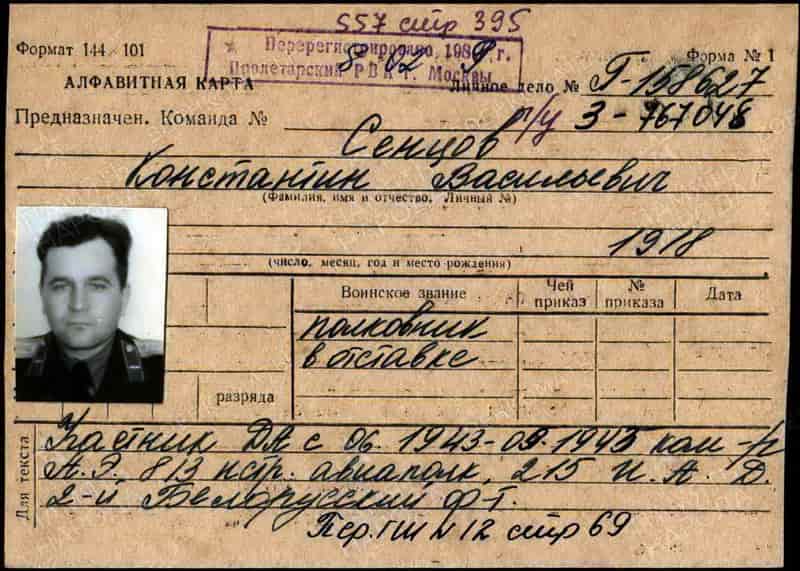 557 стр 395
Формат 144×101
Перерегистрировано, 198 г.
Форма № 1
8 02
Пролетарский РВК г. Москвы
АЛФАВИТНАЯ КАРТА
Личное дело № Г-158627
Предназначен. Команда №
п/у З-767048
Сенцов
Константин Васильевич
(Фамилия, имя и отчество, Личный №)
1918
(число, месяц, год и место рождения)
Воинское звание
Чей приказ
№ приказа
Дата
полковник
в отставке
разряда
Для текста
Участник ДА с 06. 1943-09.1945 ком-р
А.Э., 813 истр. авиаполк, 215 И. А. Д.
2-й Белорусский ф-т.
Пер. ГШ № 12 стр 69